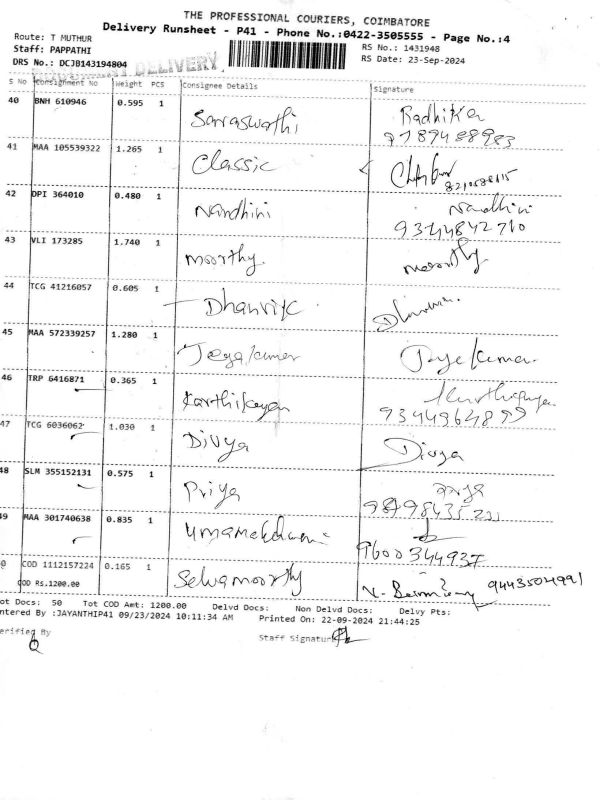 THE PROFESSIONAL COURIERS, COIMBATORE
Delivery Runsheet - P41 - Phone No.:0422-3505555 - Page No.:4
Route: T MUTHUR
RS No.: 1431948
Staff: PAPPATHI
RS Date: 23-Sep-2024
DRS No.: DCJB143194804
DELIVERY
S No Consignment No Weight PCS Consignee Details Signature
40 BNH 610946 0.595 1 Saraswathi Radhika
41 MAA 105539322 1.265 1 Classic
42 DPI 364010 0.480 1 Nandhini Nandhini
9344842710
43 VLI 173285 1.740 1 moorthy. moorthy
44 TCG 41216057 0.605 1 Dhanvik
45 MAA 572339257 1.280 1 Jeyakumar Jeyakumar
46 TRP 6416871 0.365 1 Karthikeyan
9344964899
47 TCG 6036062 1.030 1 Divya Divya
48 SLM 355152131 0.575 1 Priya
49 MAA 301740638 0.835 1
9600344937
0 COD 1112157224 0.165 1 Selvamoorthy 9443504991
COD Rs.1200.00
ot Docs: 50 Tot COD Amt: 1200.00 Delvd Docs: Non Delvd Docs: Delvy Pts:
ntered By :JAYANTHIP41 09/23/2024 10:11:34 AM Printed On: 22-09-2024 21:44:25
erified By Staff Signature